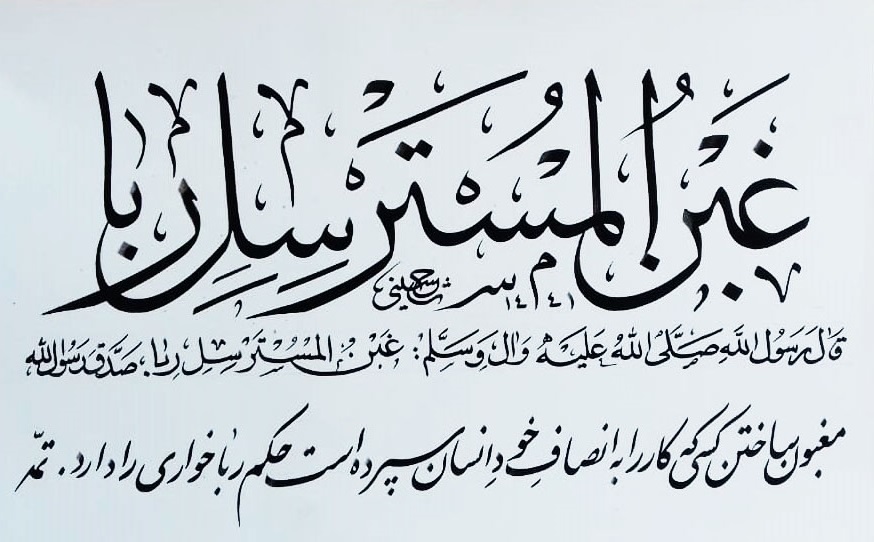 غَبْنُ الْمُسْتَرْسِلِ رِبا
١٤٤١
قالَ رَسُولُ اللهِ صَلَّی اللهُ عَلَیْهِ وَالِ وَسَلَّم: غَبْنُ الْمُسْتَرْسِلِ رِبا. صَدَقَ رَسُولُ الله
مغبون ساختن کسی که کار را به انصافِ خودِ انسان سپرده است حکم رباخواری را دارد. تمّد